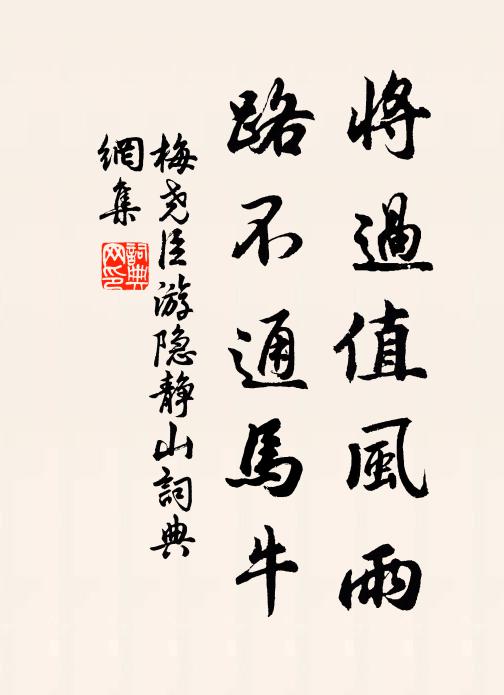 將過值風雨
路不通馬牛
梅尧臣游隐静山詞典
網集
詞典
网印